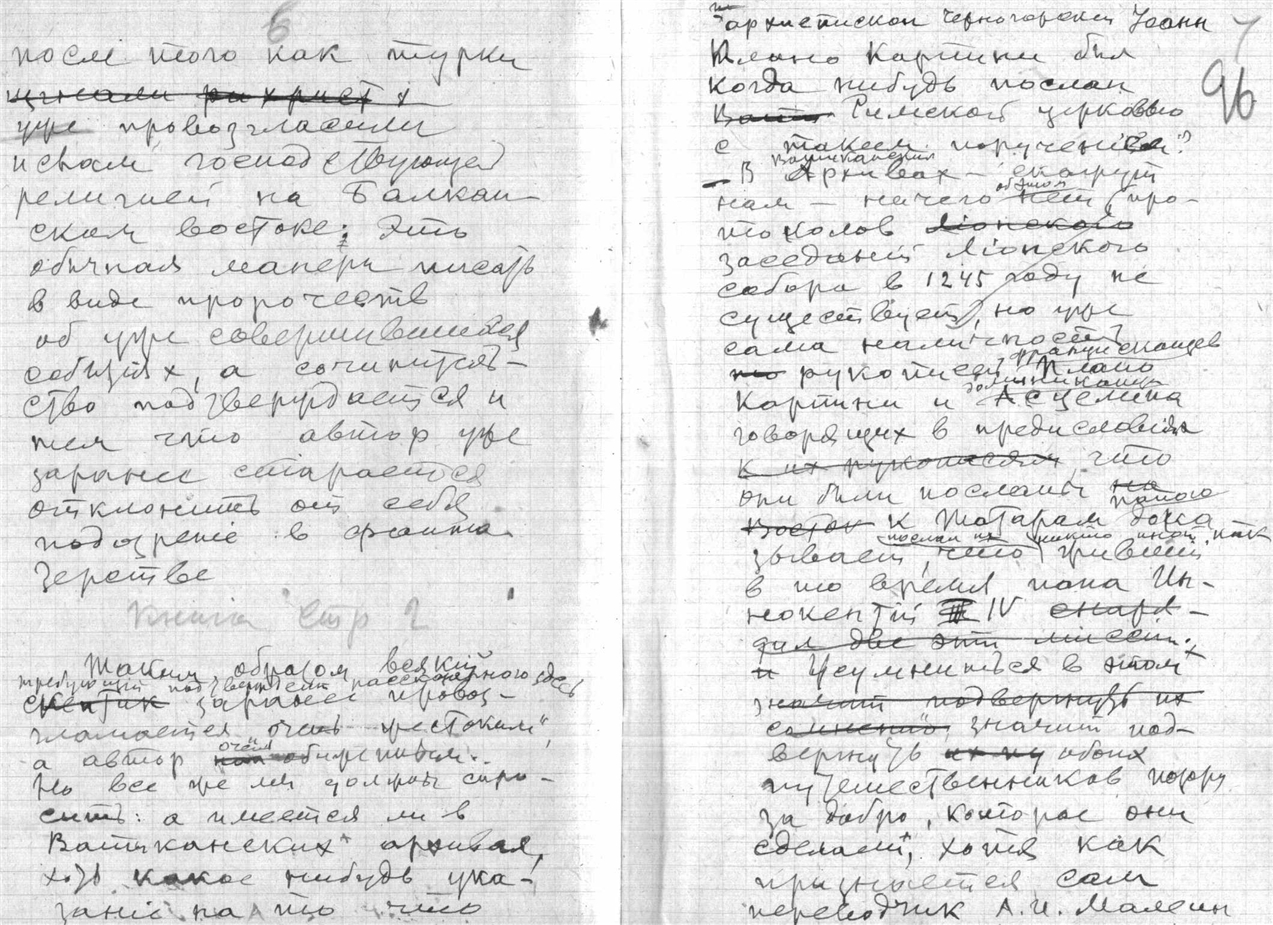 6
после того как турки
уже провозгласили
ислам господствующей
религией на Балкан-
ском востоке. Это
обычная манера писать
в виде пророчеств
об уже совершившихся
событиях, а сочинитель-
ство подтверждается и
тем что автор уже
заранее старается
отклонить от себя
подозрение в фанта-
зерстве
Книга Стр 2
Таким образом всякий
требующий подтверждения рассказанного здесь
скептик заранее провоз-
глашается „очень жестоким“,
а автор очень обиженным.
Но все же мы должны спро-
сить: а имеется ли в
Ватиканских архивах,
хоть какое нибудь ука-
заніе на то что
7
96
архиепископ Черногорский Іоанн
Плано Карпини был
когда нибудь послан
Римской церковью
с таким поручением?
Ватиканских
– В Архивах – скажут
об этом
нам – ничего нет, про-
токолов Ліонского
заседаній Ліонского
собора в 1245 году не
существует, но уже
сама наличность
францисканцев
рукописей Плано
доминиканца
Карпини и Асцелина
говорящих в предисловіях
к их рукописям, что
они были посланы на
папою
Восток к Татарам дока
послал их никто иной как
зывает, что живший
в то время папа Ин-
нокентій IV снаря-
дил две эти миссіи.
и Усумниться в этом
значит подвергнуть их
сомненію значит под-
вергнуть обоих
путешественников
за добро, которое они
сделали, хотя как
признается сам
переводчик А.И. Малеин